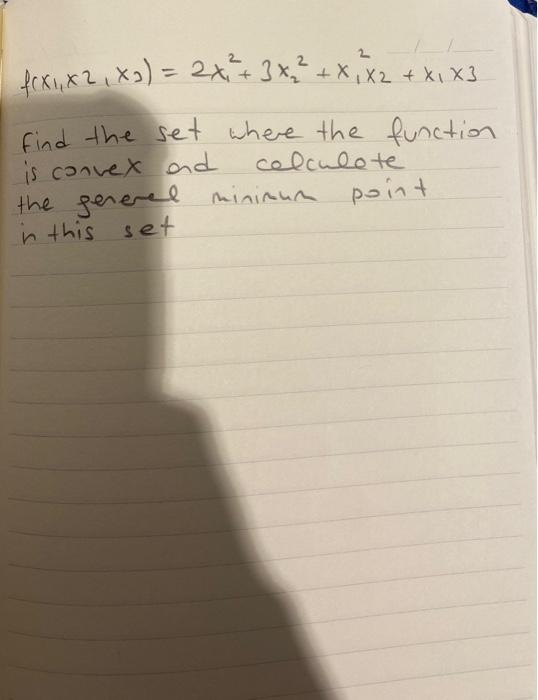 f(x1,x2,x3) = 2x₁² + 3x₂² + x₁²x2 + x1x3
find the set where the function
is convex and calculate
the general minimum point
in this set